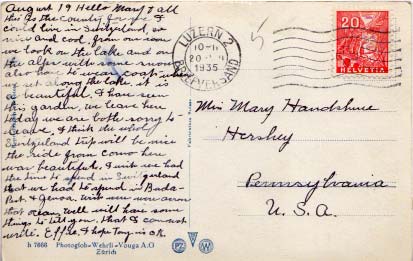 August 19 Hello Mary & all
this is the country for me I
could live in Switzerland, so
nice and cool, from our room
we look on the lake and on
the alps with some snow
also have to wear coat when
we sit along the lake. it is
a beautiful. I have seen
this garden, we leave here
today we are both sorry to
leave, I think the whole
Switzerland trip will be nice
the ride from Como here
was beautiful, I wish we had
the time to spend in Switzerland
that we had to spend in Buda-
Pest & Genoa. wish we were across
that ocean, well will have some
things to tell you, that I can not
write. Effie, & hope Tony is O.K.
h 7666 Photoglob-Wehrli-Vouga A.G
Zürich
LUZERN 2
10-11
20
1935
BRIEFVERSAND
5
20
HELVETIA
Miss Mary Handshue
Hershey
Pennsylvania
U. S. A.